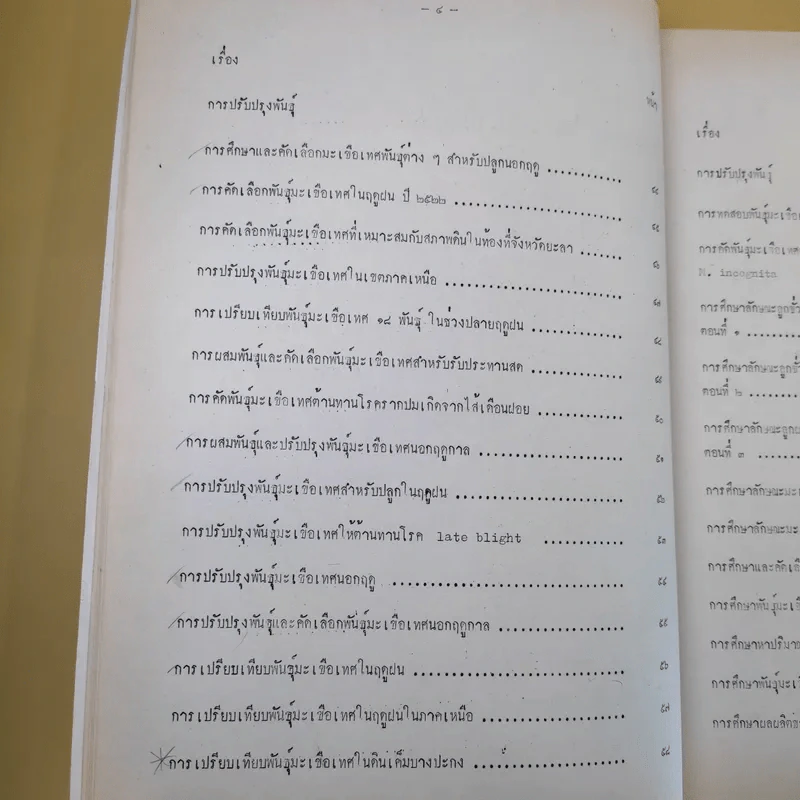 - ๔ -
เรื่อง
หน้า
การปรับปรุงพันธุ์
การศึกษาและคัดเลือกมะเขือเทศพันธุ์ต่าง ๆ สำหรับปลูกนอกฤดู ............
การคัดเลือกพันธุ์มะเขือเทศในฤดูฝน ปี ๒๕๒๒ ....................
การคัดเลือกพันธุ์มะเขือเทศที่เหมาะสมกับสภาพดินในท้องที่จังหวัดยะลา .......
การปรับปรุงพันธุ์มะเขือเทศในเขตภาคเหนือ ......................
การเปรียบเทียบพันธุ์มะเขือเทศ ๑๘ พันธุ์ ในช่วงปลายฤดูฝน ............
การผสมพันธุ์และคัดเลือกพันธุ์มะเขือเทศสำหรับรับประทานสด ............
การคัดพันธุ์มะเขือเทศต้านทานโรครากปมเกิดจากไส้เดือนฝอย ............ ๕๐
การผสมพันธุ์และปรับปรุงพันธุ์มะเขือเทศนอกฤดูกาล .................. ๕๑
การปรับปรุงพันธุ์มะเขือเทศสำหรับปลูกในฤดูฝน .................... ๕๒
การปรับปรุงพันธุ์มะเขือเทศให้ต้านทานโรค late blight ............ ๕๓
การปรับปรุงพันธุ์มะเขือเทศนอกฤดู ............................ ๕๔
การปรับปรุงพันธุ์และคัดเลือกพันธุ์มะเขือเทศนอกฤดูกาล ................ ๕๕
การเปรียบเทียบพันธุ์มะเขือเทศในฤดูฝน ......................... ๕๖
การเปรียบเทียบพันธุ์มะเขือเทศในฤดูฝนในภาคเหนือ .................. ๕๗
การเปรียบเทียบพันธุ์มะเขือเทศในดินเค็มบางปะกง .................. ๕๘
เรื่อง
การปรับปรุงพันธุ์
การทดสอบพันธุ์มะเขือ
การคัดพันธุ์มะเขือเทศ
M. incognita
การศึกษาลักษณะลูกชั่ว
ตอนที่ ๑ ..........
การศึกษาลักษณะลูกชั่ว
ตอนที่ ๒ ..........
การศึกษาลักษณะลูกผ
ตอนที่ ๓ ..........
การศึกษาลักษณะมะ
การศึกษาลักษณะมะ
การศึกษาและคัดเลื
การศึกษาพันธุ์มะเขื
การศึกษาหาปริมาณ
การศึกษาพันธุ์มะเ
การศึกษาผลผลิต